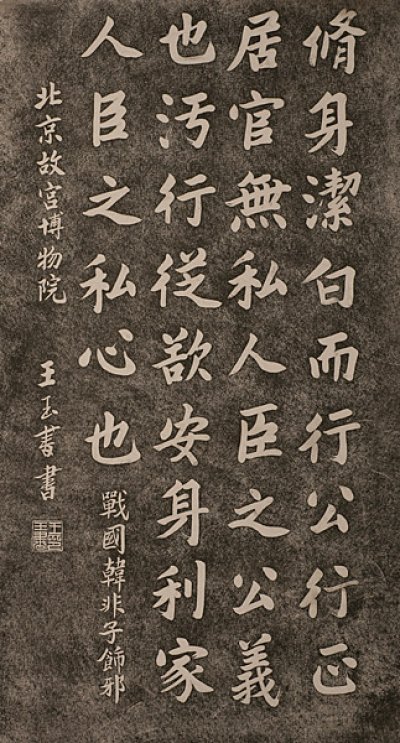 脩身潔白而行公行正
居官無私人臣之公義
也污行從欲安身利家
人臣之私心也 戰國韓非子飾邪
北京故宮博物院 王玉書書